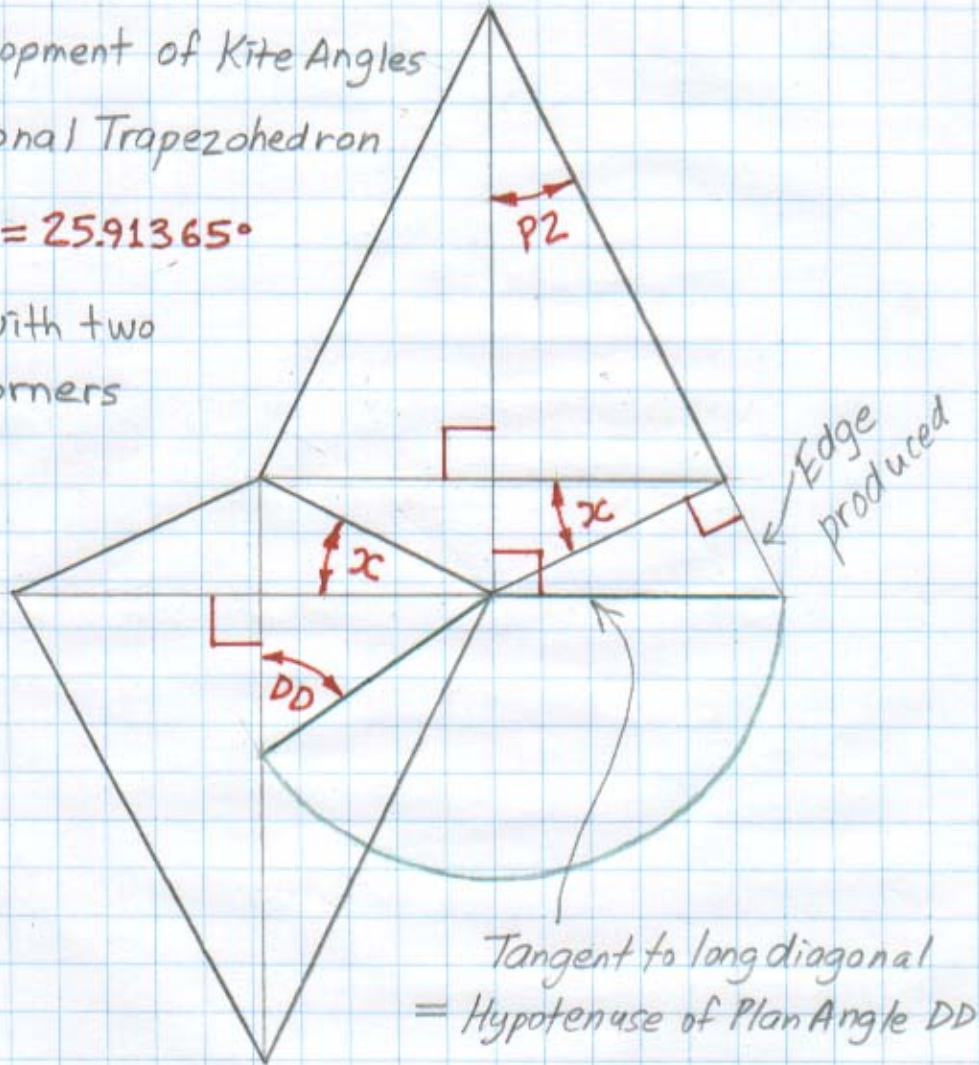 opment of Kite Angles
onal Trapezohedron
= 25.91365°
with two
orners
P2
Edge
produced
x
x
DD
Tangent to long diagonal
= Hypotenuse of Plan Angle DD